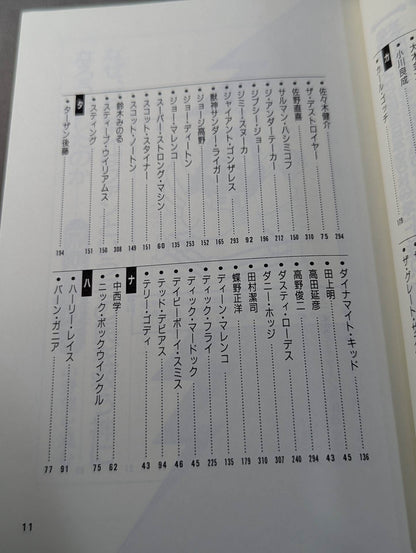 カ
小川良成
カール・ゴッチ
175
佐々木健介 294
ザ・デストロイヤー 75
佐野直喜 310
サルマン・ハシミコフ 150
ジ・アンダーテイカー 212
ジプシー・ジョー 196
ジミー・スヌーカ 92
ジャイアント・ゴンザレス 293
獣神サンダー・ライガー 165
ジョージ高野 152
ジョー・ディートン 253
ジョー・マレンコ 135
スーパー・ストロング・マシン 60
スコット・スタイナー 151
スコット・ノートン 149
鈴木みのる 308
スティーブ・ウイリアムス 150
スティング 151
タ
ターザン後藤 194
ダイナマイト・キッド 136
田上明 45
高田延彦 43
高野俊二 294
ダスティ・ローデス 240
ダニー・ホッジ 307
田村潔司 310
蝶野正洋 179
ディーン・マレンコ 135
ディック・フライ 225
ディック・マードック 45
デイビーボーイ・スミス 46
テッド・デビアス 94
テリー・ゴディ 43
ナ
中西学 62
ニック・ボックウインクル 75
ハ
ハーリー・レイス 91
バーン・ガニア 77
11